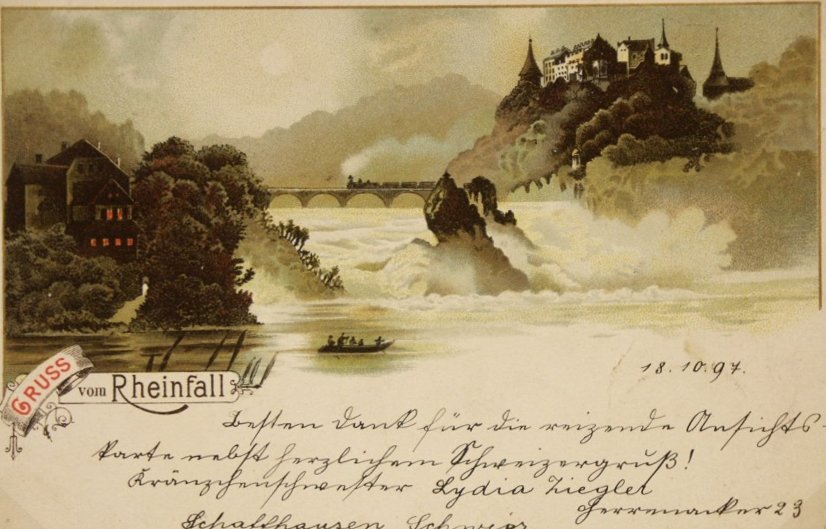 GRUSS
vom Rheinfall
18.10.97.
Besten Dank für die reizende Ansichts-
karte nebst herzlichem Schweizergruß!
Kränzchenschwester Lydia Ziegler
Herrenacker 23
Schaffhausen Schweiz